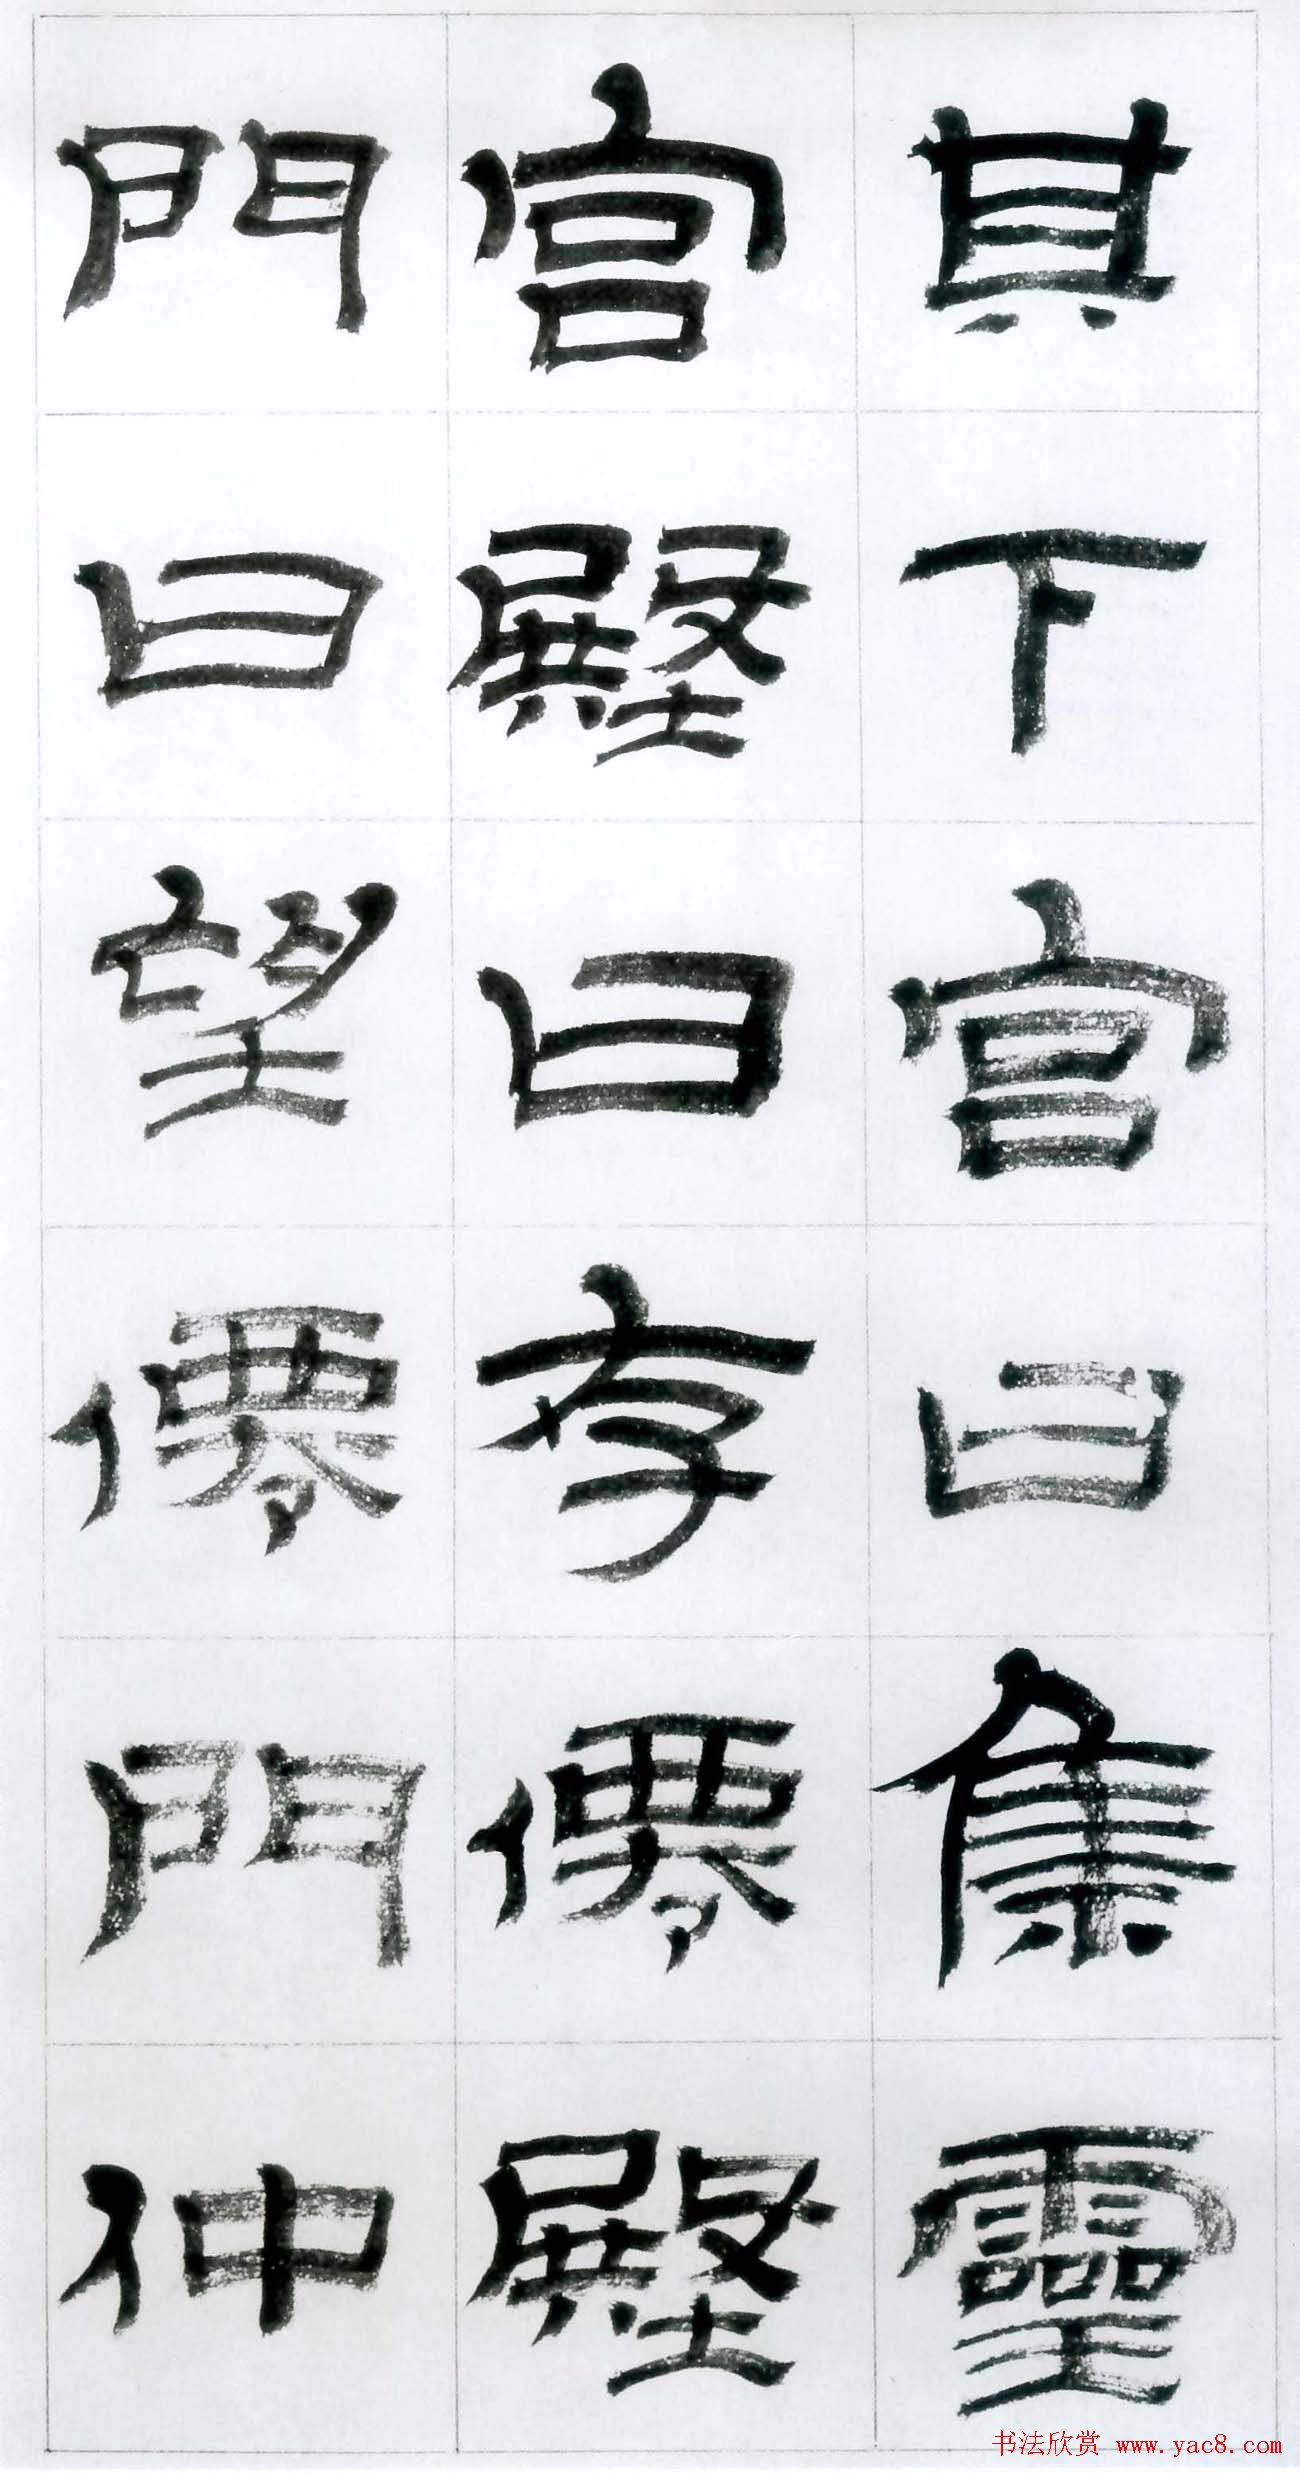 其下宮曰集靈
宮壂曰存僊壂
門曰望僊門仲
书法欣赏 www.yac8.com